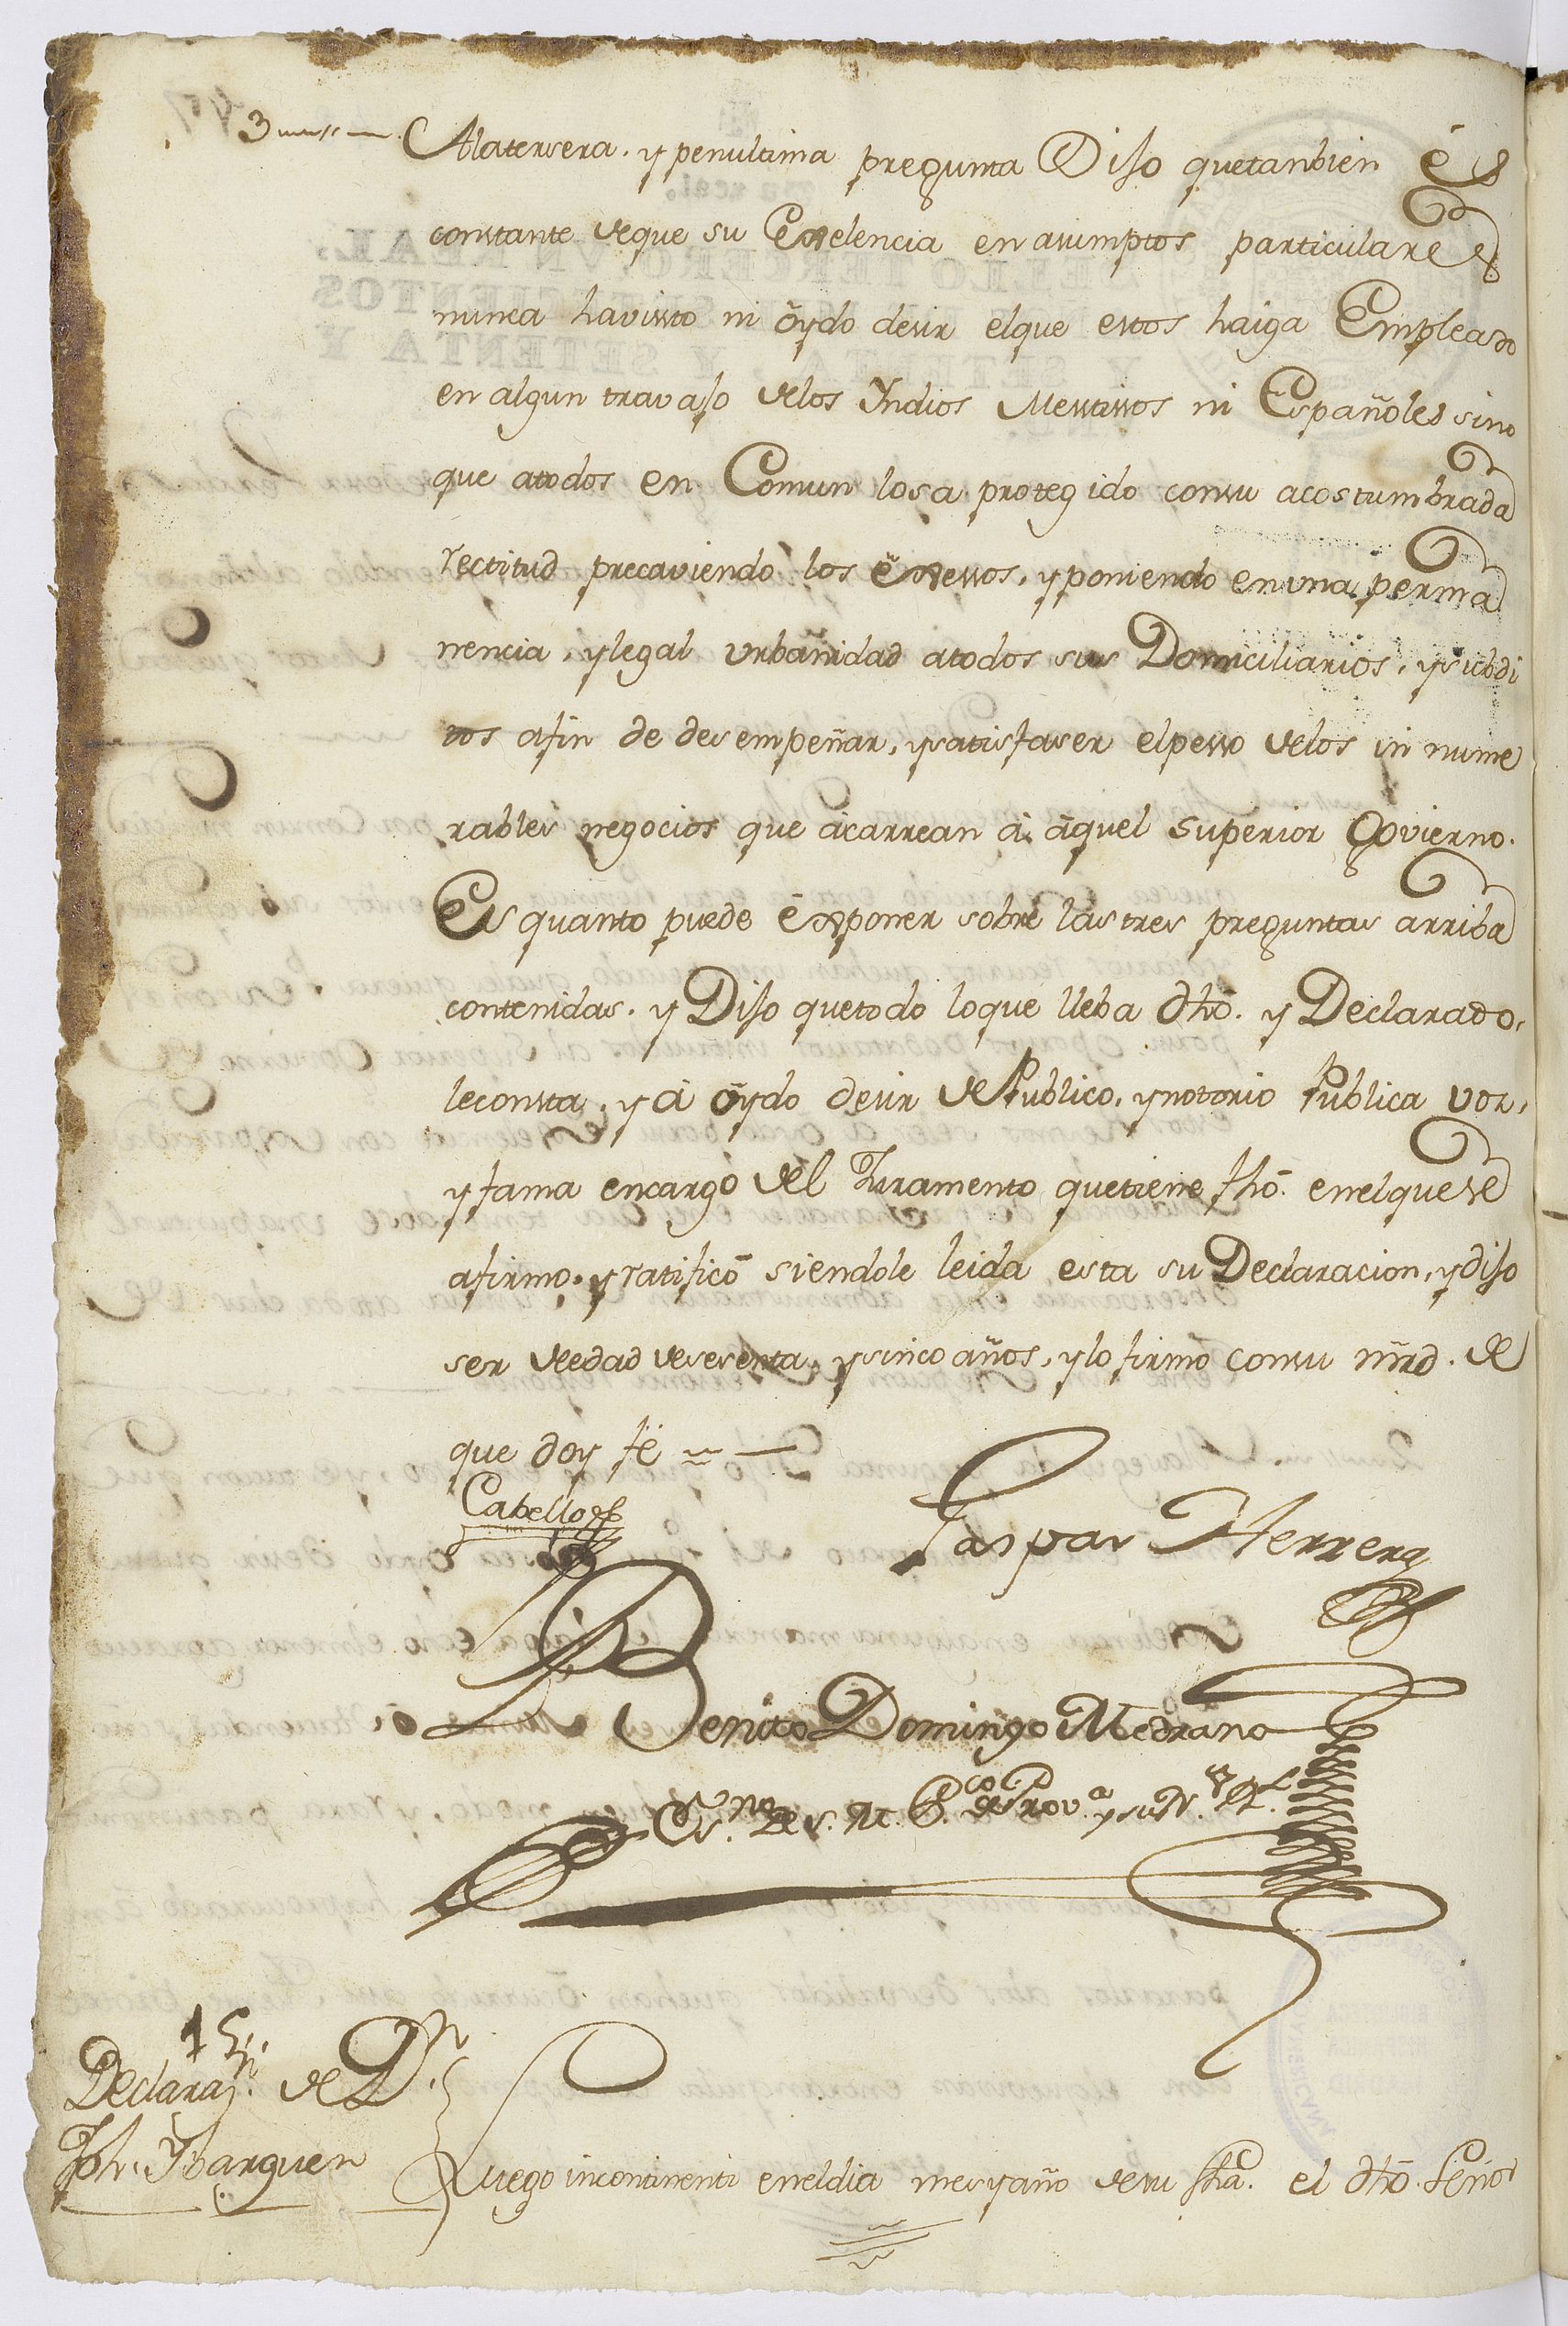 3
Alatersera. y penultima pregunta Dijo quetanbien és
constante deque su Exelencia en asumptos particulares
nunca havissto ni oydo desir elque estos haiga Empleado
en algun travajo delos Yndios Messtissos ni Españoles sino
que atodos en Comun losa protegido consu acostumbrada
rectitud precaviendo los exessos, y poniendo enuna perma
nencia, y legal urbanidad atodos sus Domiciliarios, y subdi
tos afin de desempeñar, y satisfaser elpesso delos in nume
rables negocios que ácarrean á áquel superior Govierno.
Es quanto puede exponer sobre las tres preguntas arriba
contenidas. y Dijo quetodo loque lleba dho. y Declarado,
leconsta, y á oydo desir de Publico, y notorio publica vos,
y fama encargo del Juramento quetiene fho. enelquese
afirmo, y ratificó siendole leida esta su Declaracion, y dijo
ser deedad desesenta, y sinco años, y lo firmó consu mrd. de
que doy fé
Cabello
Gaspar Herrera
Benito Domingo Medrano
Es.no de S. M. P.co de Prov.a y su
15
Declaraz.n de D.n
Jph. Ybarguen
Luego incontinenti eneldia mes y año desu fha. el dho. Señor